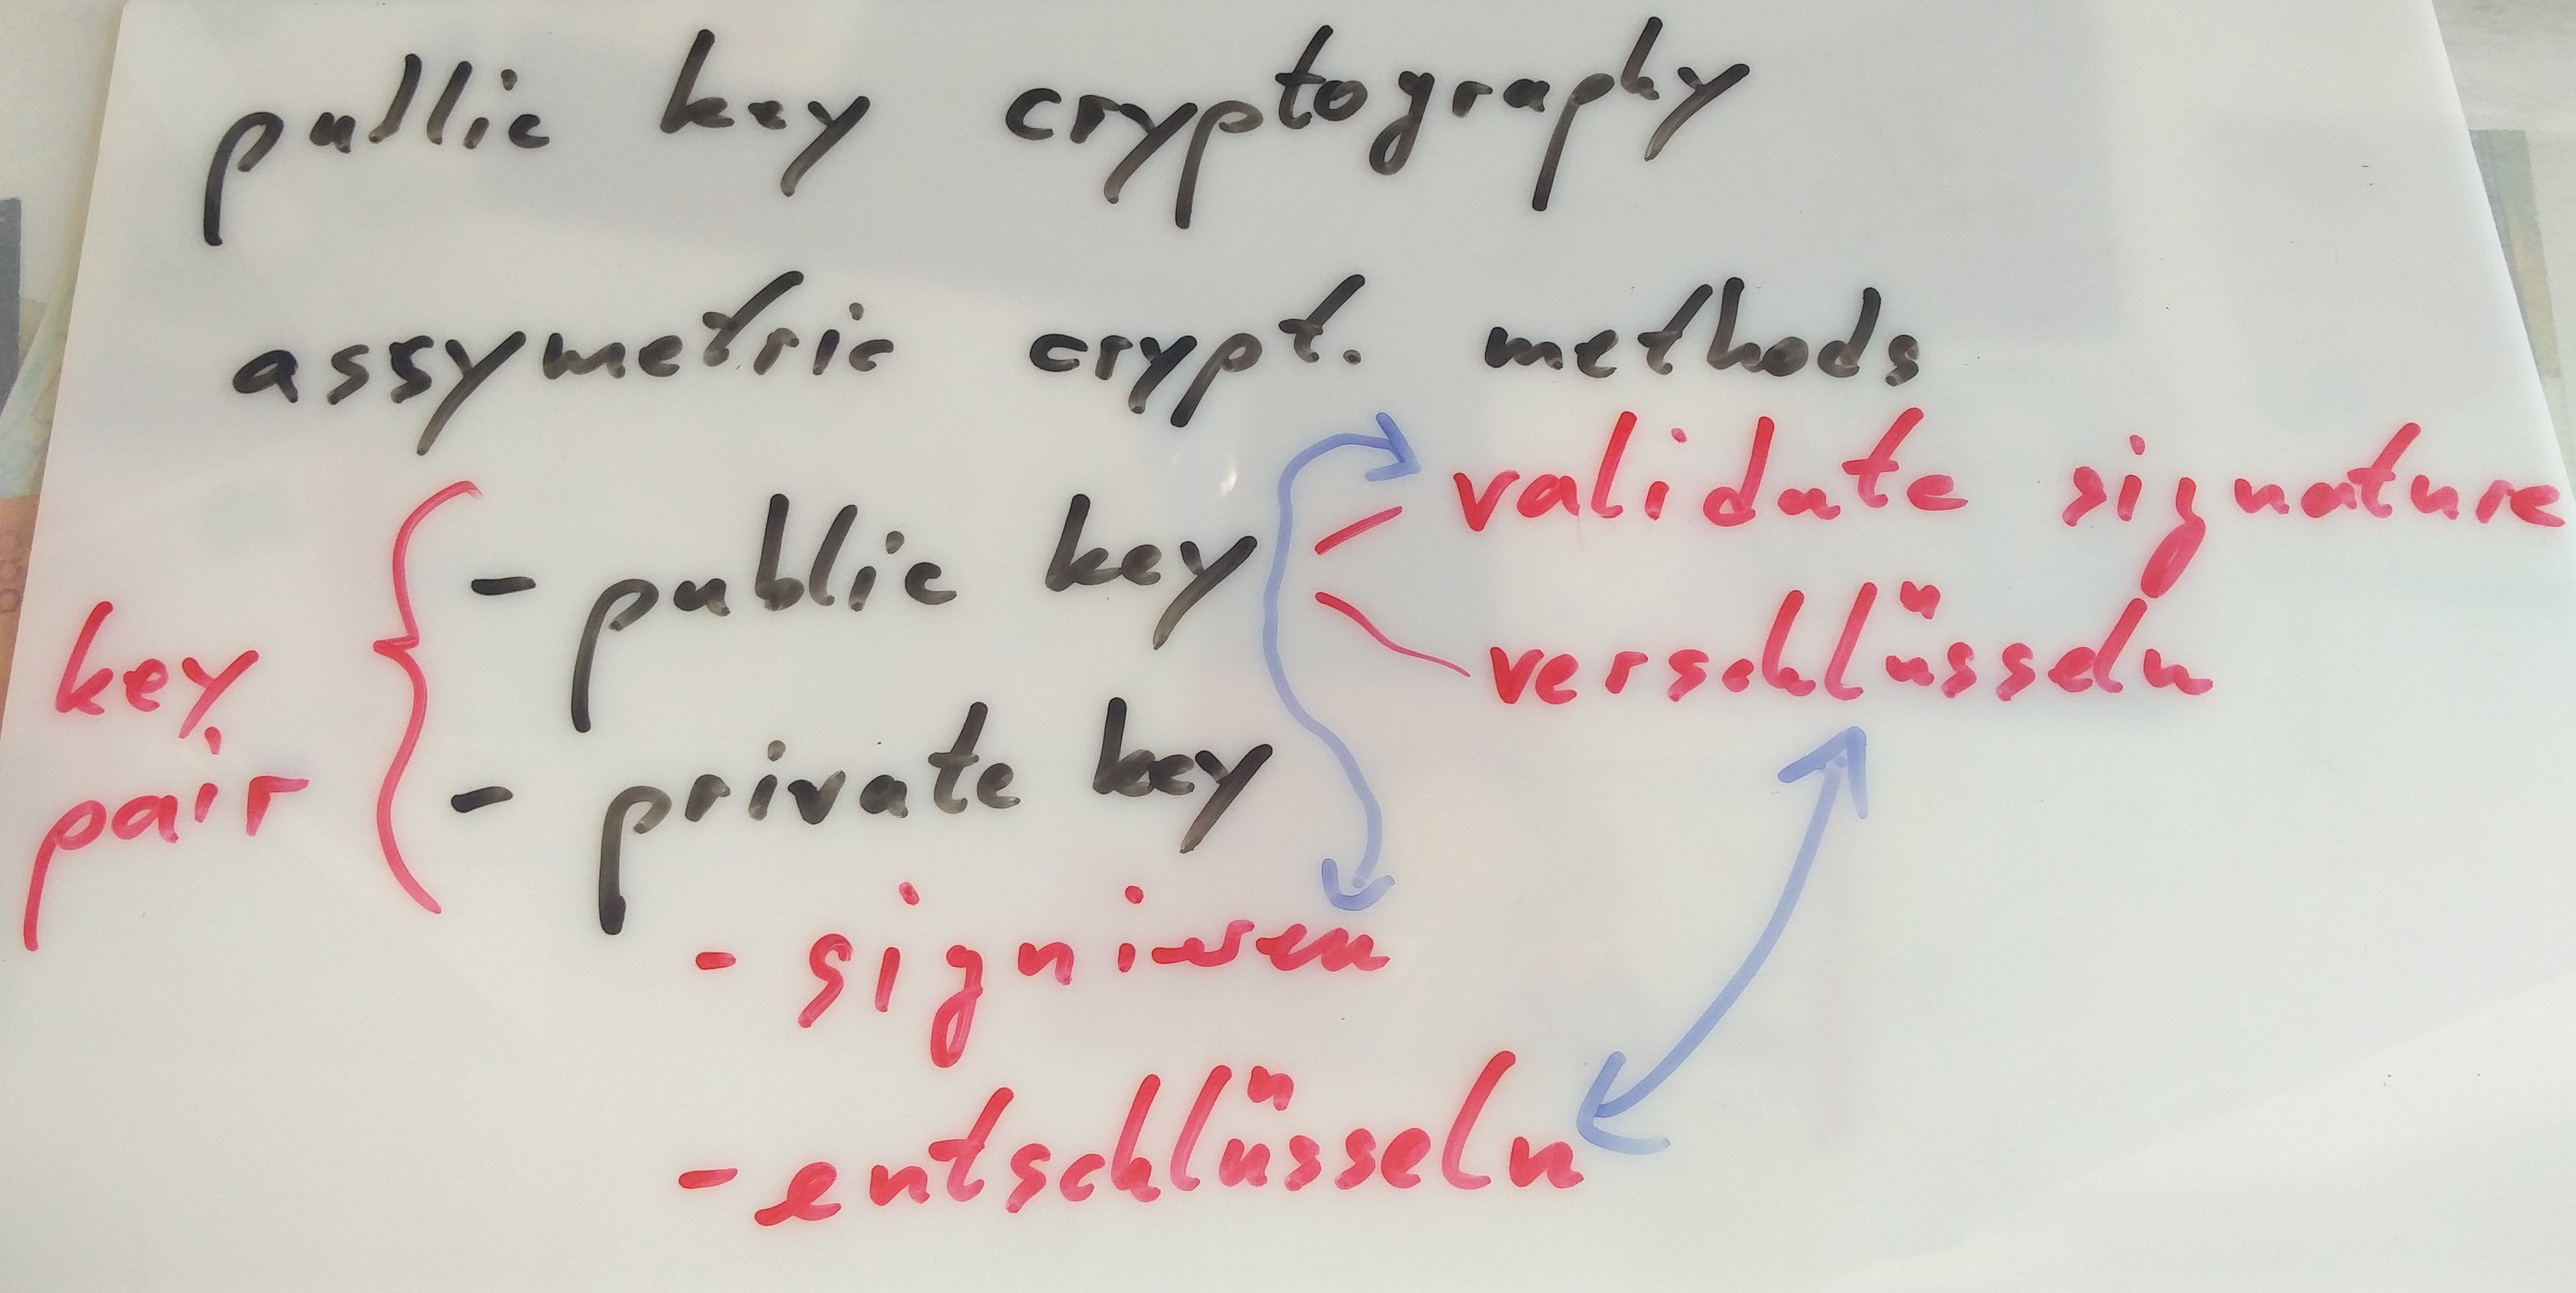 public key cryptography
assymetric crypt. methods
key pair
- public key
validate signature
verschlüsseln
- private key
- signieren
- entschlüsseln